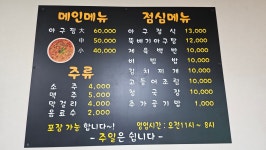 메인메뉴
아구찜 大 60,000
中 50,000
小 40,000
주류
소주 4,000
맥주 4,000
막걸리 4,000
음료수 2,000
포장 가능 합니다~!
점심메뉴
아구정식 13,000
뚝배기아구탕 12,000
제육백반 10,000
비빔밥 10,000
김치찌개 10,000
고등어조림 10,000
청국장 10,000
추가공기밥 1,000
영업시간 : 오전11시 ~ 8시
- 주일은 쉽니다 -